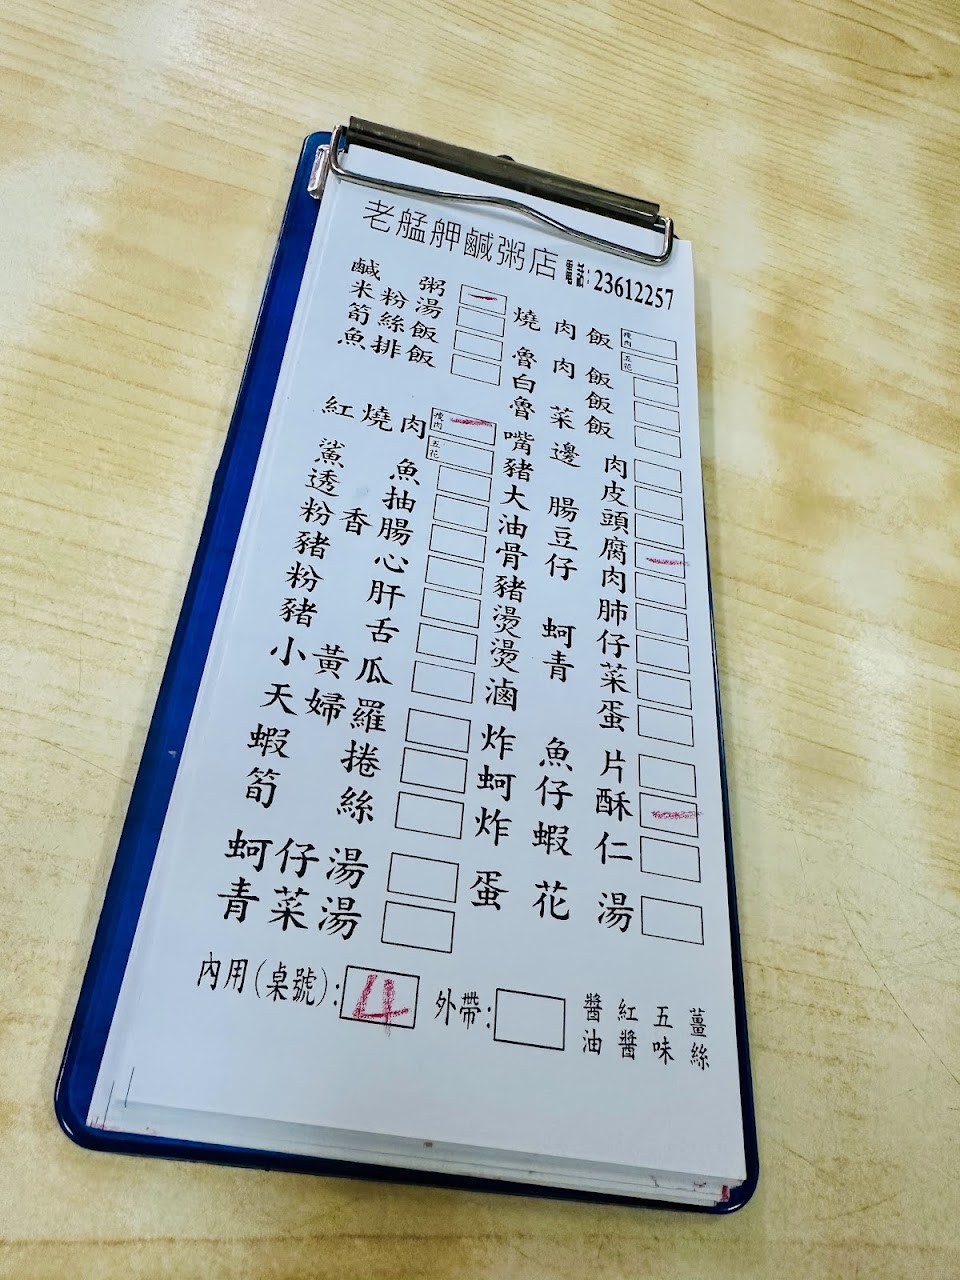 老艋舺鹹粥店 電話:23612257
鹹粥
米粉湯
筍絲飯
魚排飯
紅燒肉 瘦肉
五花
鯊魚
透抽
粉香腸
豬心
粉肝
豬舌
小黃瓜
天婦羅
蝦捲
筍絲
蚵仔湯
青菜湯
燒肉飯 瘦肉
五花
魯肉飯
白飯
魯菜飯
嘴邊肉
豬皮
大腸頭
油豆腐
骨仔肉
豬肺
燙蚵仔
燙青菜
滷蛋
炸魚片
蚵仔酥
炸蝦仁
蛋花湯
內用(桌號): 4 外帶:
醬油 紅醬 五味 薑絲